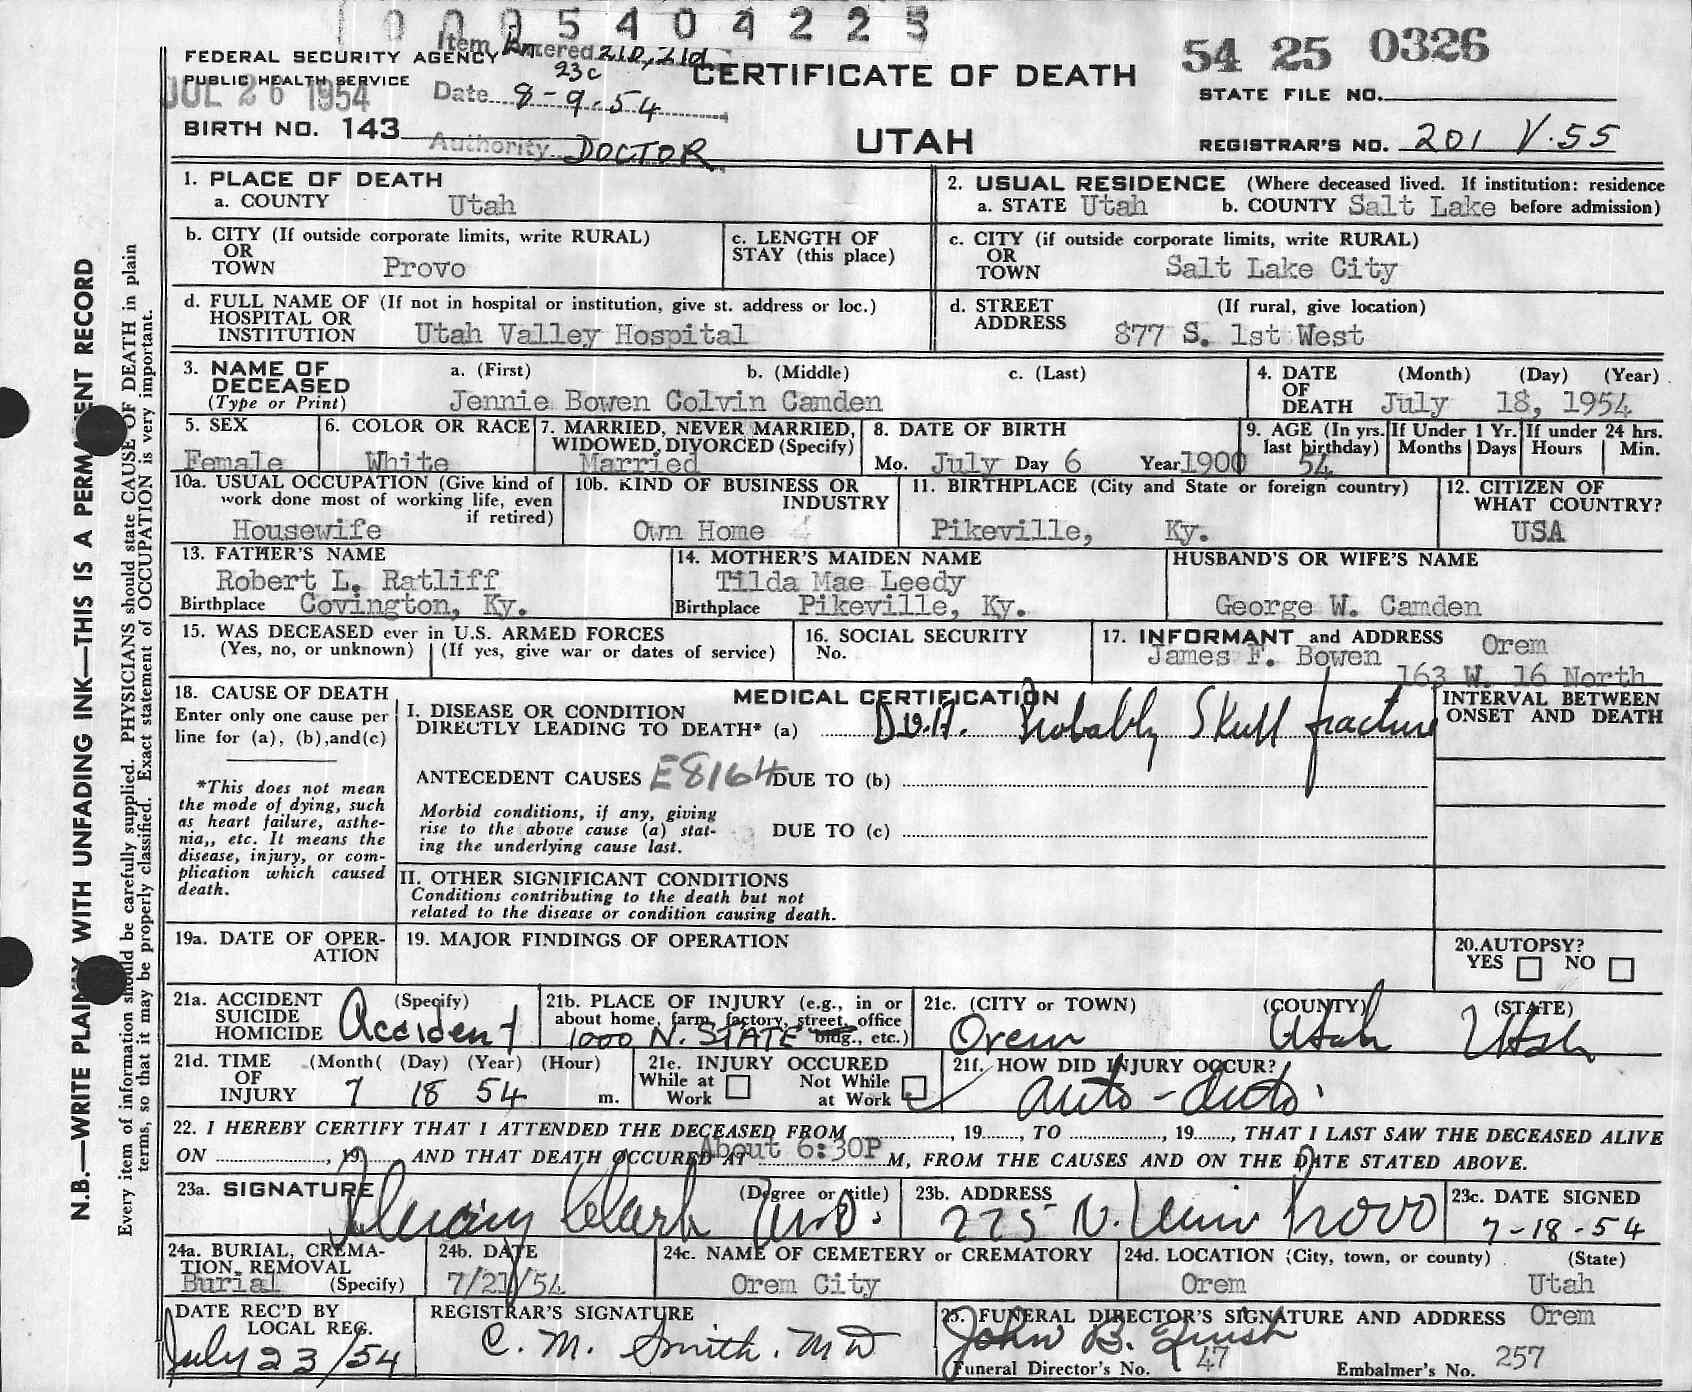 0005404223
Item Entered 21D, 21d
23c
FEDERAL SECURITY AGENCY
PUBLIC HEALTH SERVICE
JUL 26 1954
Date 8-9-54
CERTIFICATE OF DEATH
54 25 0326
STATE FILE NO.
BIRTH NO. 143
Authority DOCTOR
UTAH
REGISTRAR'S NO. 201 V.55
N.B.—WRITE PLAINLY WITH UNFADING INK—THIS IS A PERMANENT RECORD
Every item of information should be carefully supplied. PHYSICIANS should state CAUSE OF DEATH in plain
terms, so that it may be properly classified. Exact statement of OCCUPATION is very important.
1. PLACE OF DEATH
a. COUNTY Utah
2. USUAL RESIDENCE (Where deceased lived. If institution: residence
a. STATE Utah b. COUNTY Salt Lake before admission)
b. CITY (If outside corporate limits, write RURAL)
OR
TOWN Provo
c. LENGTH OF
STAY (this place)
c. CITY (if outside corporate limits, write RURAL)
OR
TOWN Salt Lake City
d. FULL NAME OF (If not in hospital or institution, give st. address or loc.)
HOSPITAL OR
INSTITUTION Utah Valley Hospital
d. STREET (If rural, give location)
ADDRESS 877 S. 1st West
3. NAME OF
DECEASED
(Type or Print)
a. (First) b. (Middle) c. (Last)
Jennie Bowen Colvin Camden
4. DATE (Month) (Day) (Year)
OF
DEATH July 18, 1954
5. SEX
Female
6. COLOR OR RACE
White
7. MARRIED, NEVER MARRIED,
WIDOWED, DIVORCED (Specify)
Married
8. DATE OF BIRTH
Mo. July Day 6 Year 1900
9. AGE (In yrs.
last birthday)
54
If Under 1 Yr.
Months Days
If under 24 hrs.
Hours Min.
10a. USUAL OCCUPATION (Give kind of
work done most of working life, even
if retired)
Housewife
10b. KIND OF BUSINESS OR
INDUSTRY
Own Home
11. BIRTHPLACE (City and State or foreign country)
Pikeville, Ky.
12. CITIZEN OF
WHAT COUNTRY?
USA
13. FATHER'S NAME
Robert L. Ratliff
Birthplace Covington, Ky.
14. MOTHER'S MAIDEN NAME
Tilda Mae Leedy
Birthplace Pikeville, Ky.
HUSBAND'S OR WIFE'S NAME
George W. Camden
15. WAS DECEASED ever in U.S. ARMED FORCES
(Yes, no, or unknown) (If yes, give war or dates of service)
16. SOCIAL SECURITY
No.
17. INFORMANT and ADDRESS Orem
James F. Bowen
163 W. 16 North
18. CAUSE OF DEATH
Enter only one cause per
line for (a), (b),and(c)
*This does not mean
the mode of dying, such
as heart failure, asthe-
nia,, etc. It means the
disease, injury, or com-
plication which caused
death.
MEDICAL CERTIFICATION
I. DISEASE OR CONDITION
DIRECTLY LEADING TO DEATH* (a) D.O.A. Probably Skull fracture
ANTECEDENT CAUSES E8164 DUE TO (b)
Morbid conditions, if any, giving
rise to the above cause (a) stat-
ing the underlying cause last.
DUE TO (c)
II. OTHER SIGNIFICANT CONDITIONS
Conditions contributing to the death but not
related to the disease or condition causing death.
INTERVAL BETWEEN
ONSET AND DEATH
19a. DATE OF OPER-
ATION
19. MAJOR FINDINGS OF OPERATION
20.AUTOPSY?
YES NO
21a. ACCIDENT (Specify)
SUICIDE
HOMICIDE
Accident
21b. PLACE OF INJURY (e.g., in or
about home, farm, factory, street, office
bldg., etc.)
1000 N. STATE
21c. (CITY or TOWN) (COUNTY) (STATE)
Orem Utah Utah
21d. TIME (Month( (Day) (Year) (Hour)
OF
INJURY 7 18 54 m.
21e. INJURY OCCURED
While at
Work
Not While
at Work
21f. HOW DID INJURY OCCUR?
Auto-Auto
22. I HEREBY CERTIFY THAT I ATTENDED THE DECEASED FROM, 19, TO, 19, THAT I LAST SAW THE DECEASED ALIVE
ON, 19 AND THAT DEATH OCCURED AT About 6:30P M, FROM THE CAUSES AND ON THE DATE STATED ABOVE.
23a. SIGNATURE (Degree or title)
Clark M.D.
23b. ADDRESS
225 N. Provo
23c. DATE SIGNED
7-18-54
24a. BURIAL, CREMA-
TION, REMOVAL
Burial (Specify)
24b. DATE
7/21/54
24c. NAME OF CEMETERY or CREMATORY
Orem City
24d. LOCATION (City, town, or county) (State)
Orem Utah
DATE REC'D BY
LOCAL REG.
July 23/54
REGISTRAR'S SIGNATURE
C. M. Smith. MD
25. FUNERAL DIRECTOR'S SIGNATURE AND ADDRESS Orem
John B.
Funeral Director's No. 47 Embalmer's No. 257